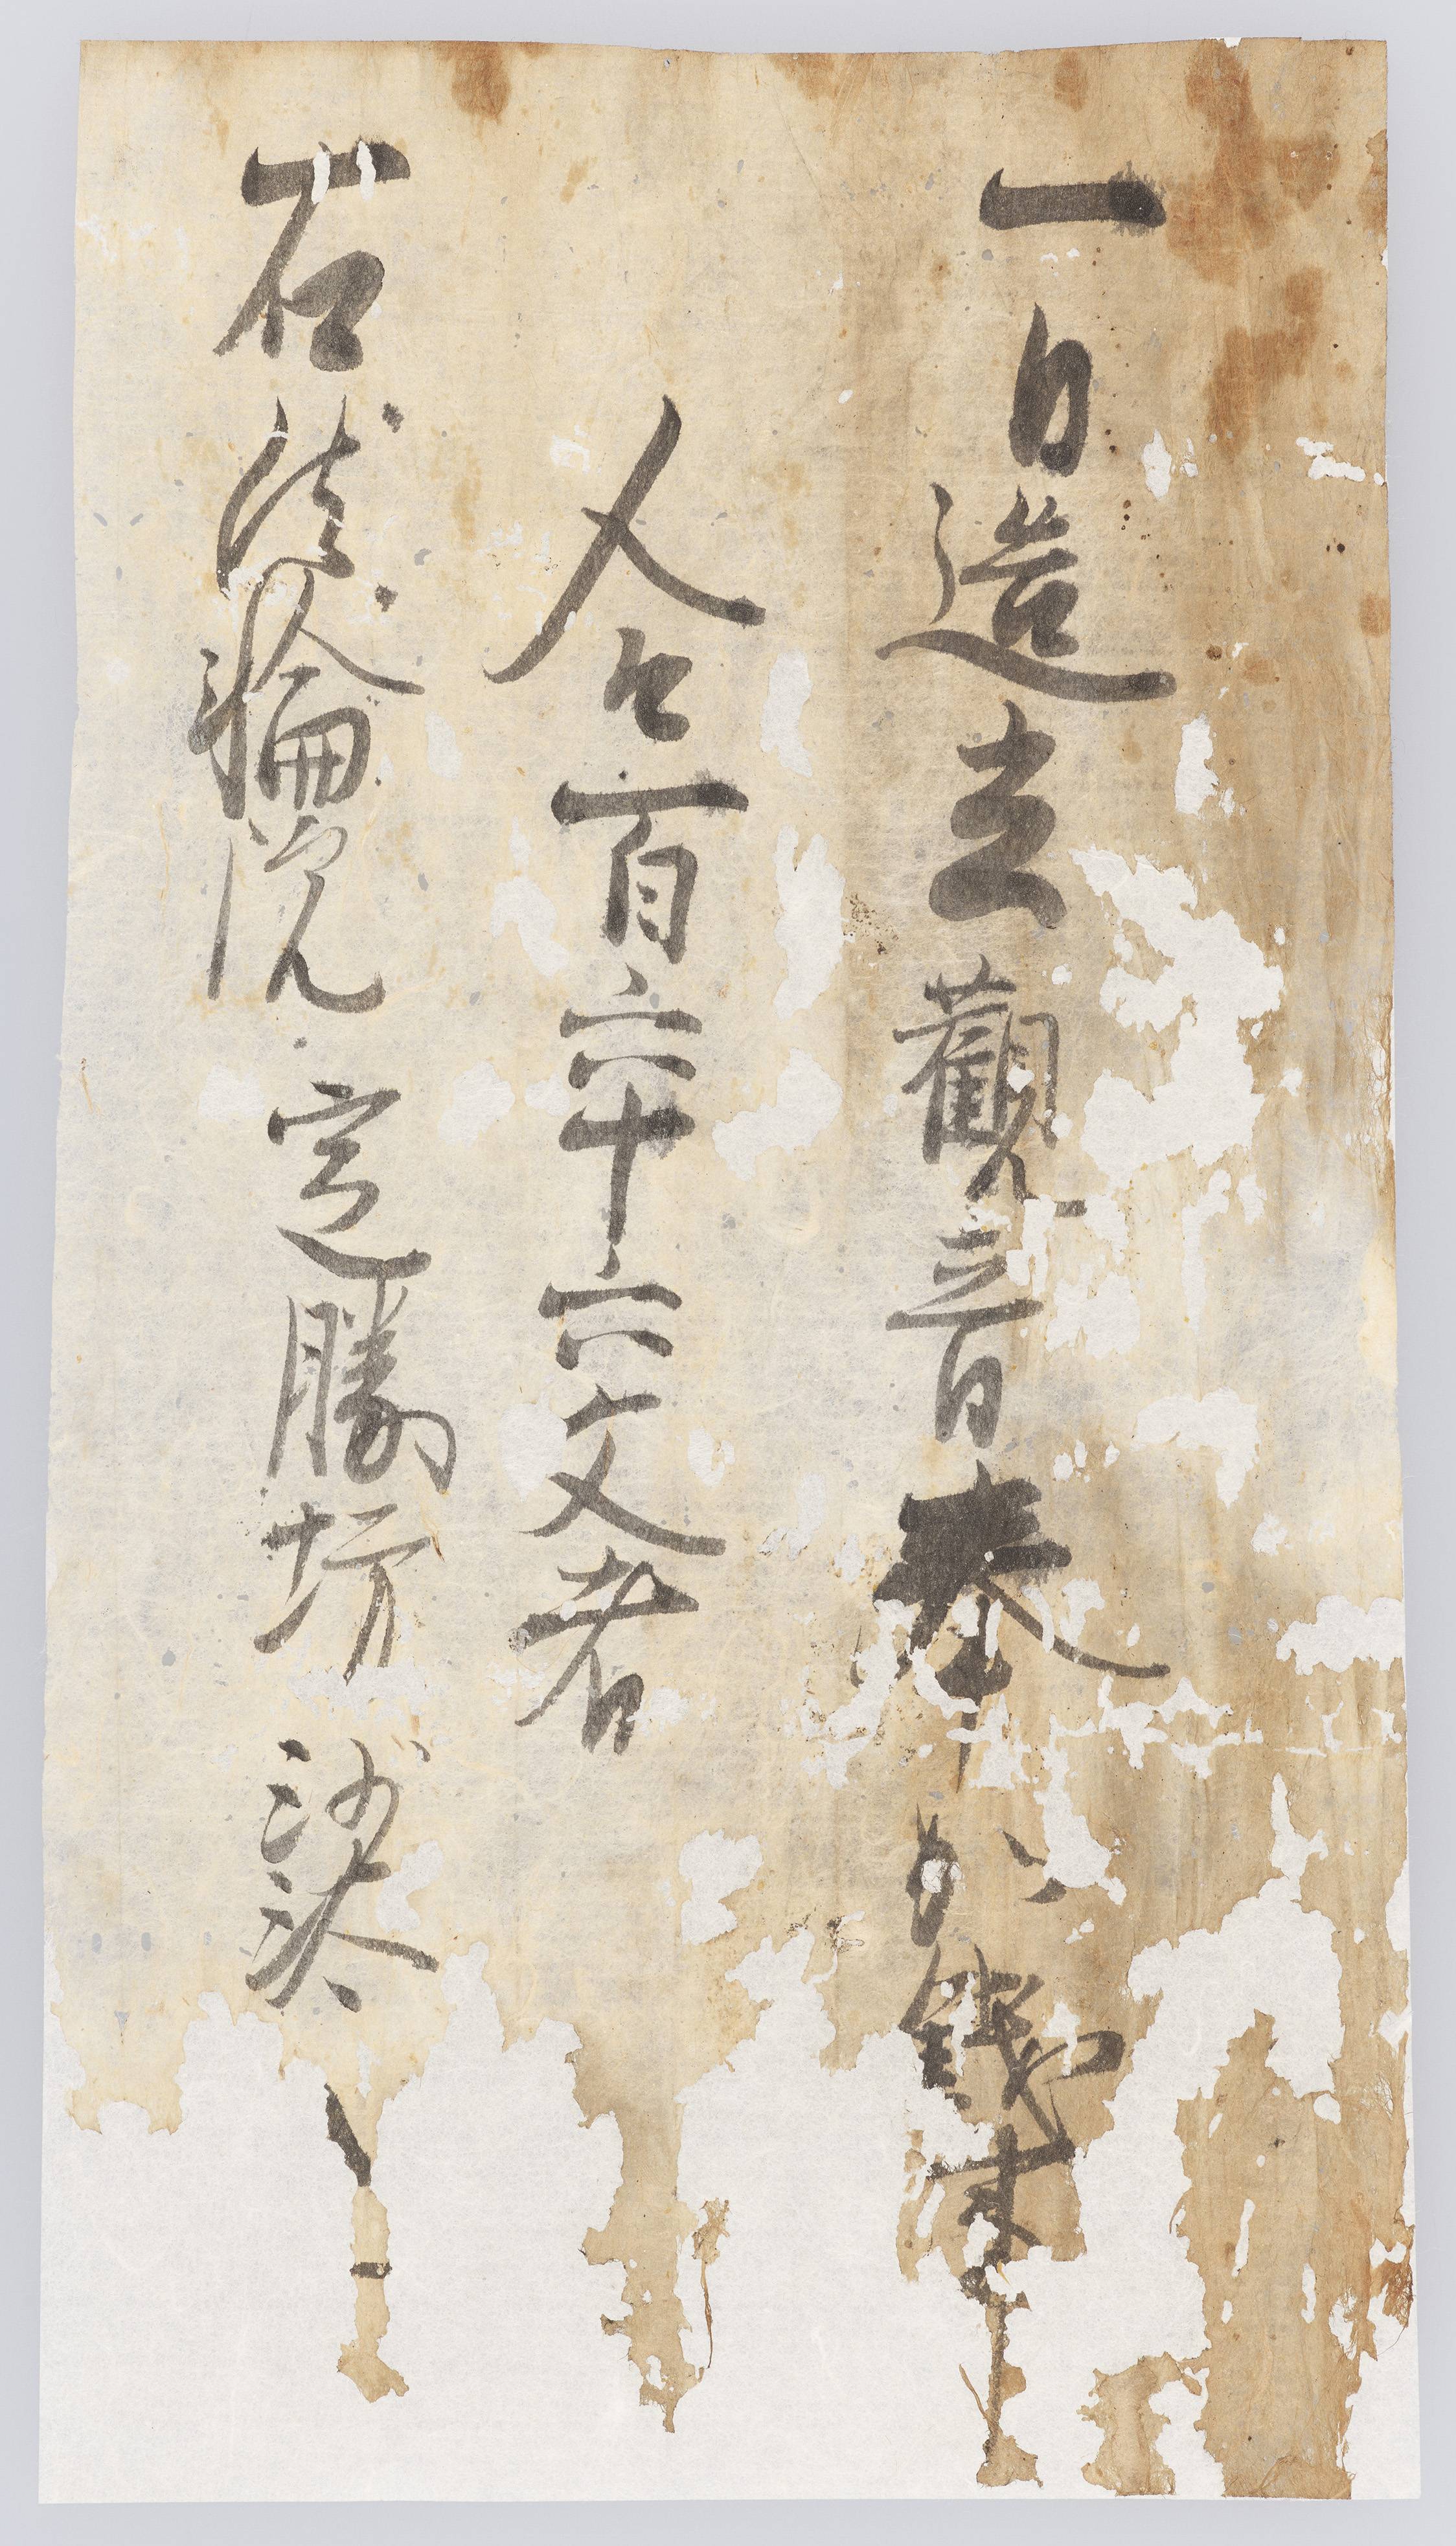 一日造立觀音奉加錢事
合百六十六文者
右法輪院定勝坊沙汰